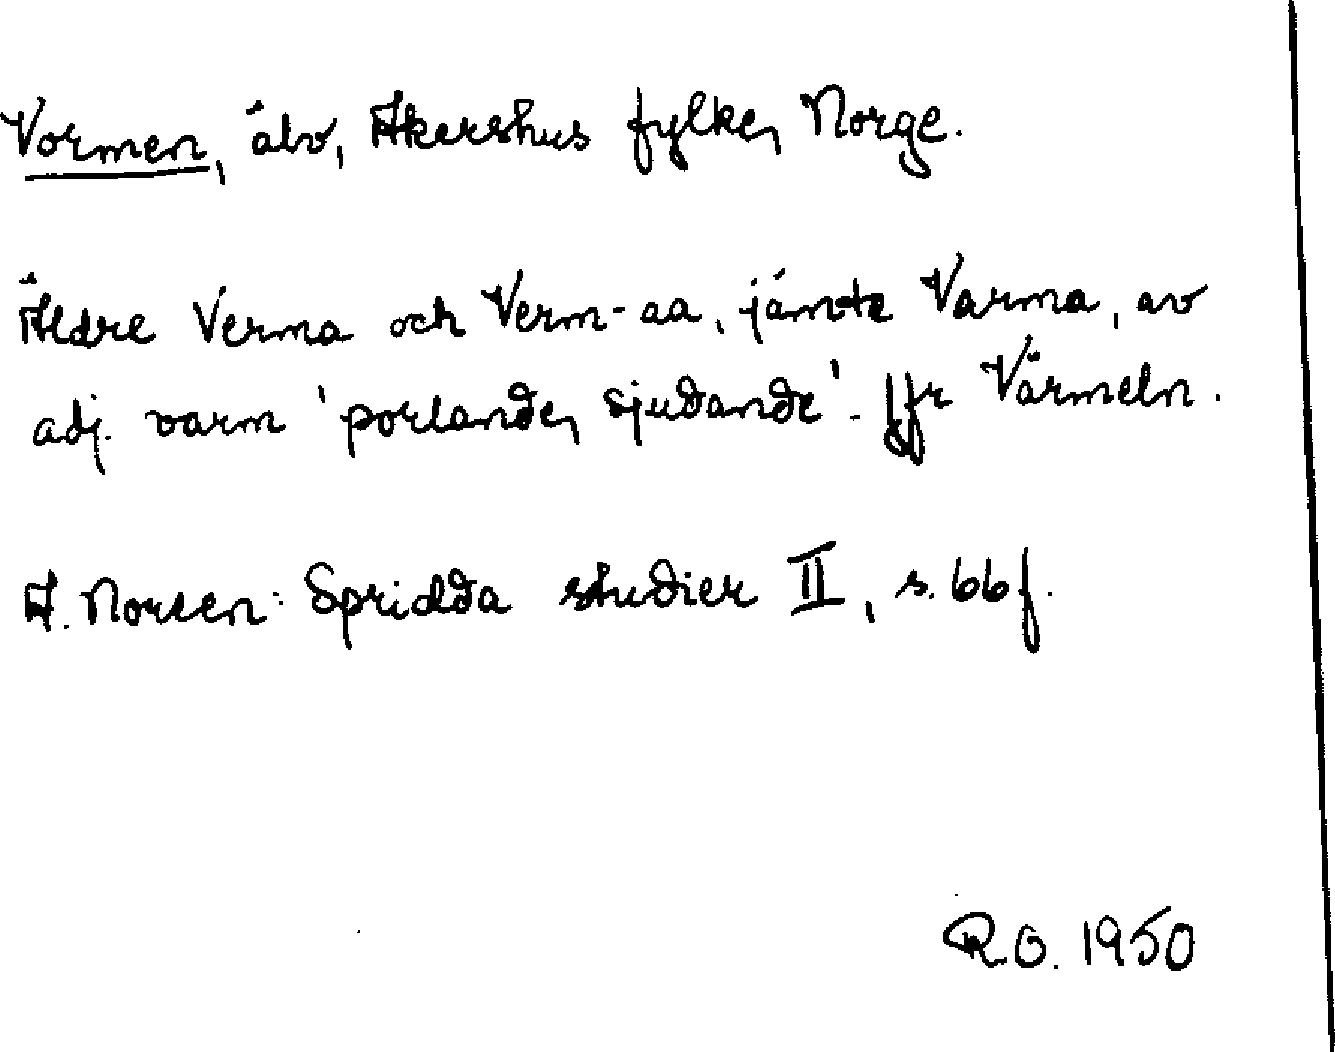 Vormen, älv, Akershus fylke, Norge.
Äldre Verma och Verm-aa, jämte Varma, av
adj. varm 'porlande, sjudande'. Jfr Värmeln.
A. Noreen: Spridda studier II, s. 66 f.
R.O. 1950